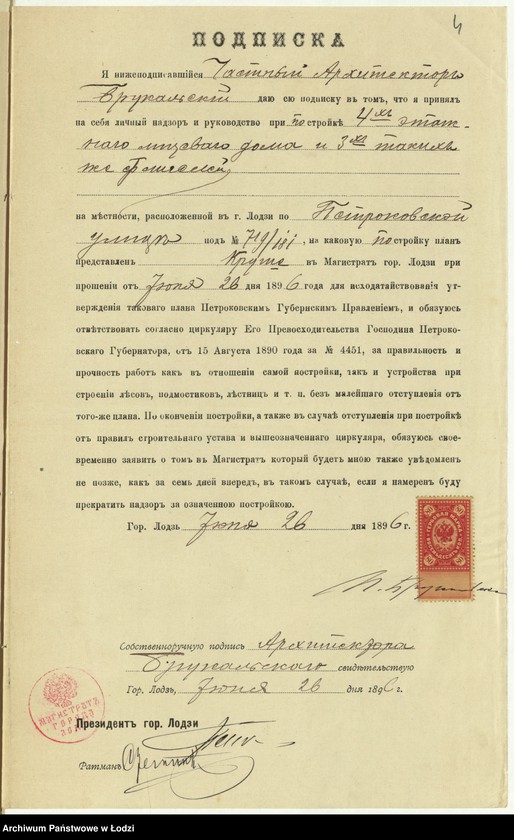 4
ПОДПИСКА
Я нижеподписавшійся Частный Архитекторъ
Брукальскій даю сію подписку въ томъ, что я принялъ
на себя личный надзоръ и руководство при постройкѣ 4хъ этаж-
наго лицеваго дома и 3хъ такихъ
же флигелей
на мѣстности, расположенной въ г. Лодзи по Петроковской
улицѣ подъ № 719/181, на каковую постройку планъ
представленъ Круше въ Магистратъ гор. Лодзи при
прошеніи отъ Іюня 26 дня 1896 года для исходатайствованія ут-
вержденія таковаго плана Петроковскимъ Губернскимъ Правленіемъ, и обязуюсь
отвѣтствовать согласно циркуляру Его Превосходительства Господина Петроко-
вскаго Губернатора, отъ 15 Августа 1890 года за № 4451, за правильность и
прочность работъ какъ въ отношеніи самой постройки, такъ и устройства при
строеніи лѣсовъ, подмостиковъ, лѣстницъ и т. п. безъ малейшаго отступленія отъ
того-же плана. По оконченіи постройки, а также въ случаѣ отступленія при постройкѣ
отъ правилъ строительнаго устава и вышеозначеннаго циркуляра, обязуюсь свое-
временно заявить о томъ въ Магистратъ который будетъ мною также увѣдомленъ
не позже, какъ за семь дней впередъ, въ такомъ случаѣ, если я намеренъ буду
прекратить надзоръ за означенною постройкою.
Гор. Лодзь Іюня 26 дня 1896 г.
Собственноручную подпись Архитектора
Брукальскаго свидѣтельствую
Гор. Лодзь, Іюня 26 дня 1896 г.
МАГИСТРАТЪ ГОРОДА ЛОДЗИ
Президентъ гор. Лодзи
Ратманъ
Archiwum Państwowe w Łodzi